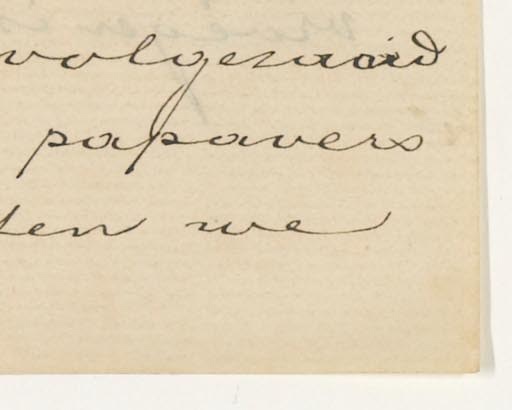 volgezaaid
papavers
ten we